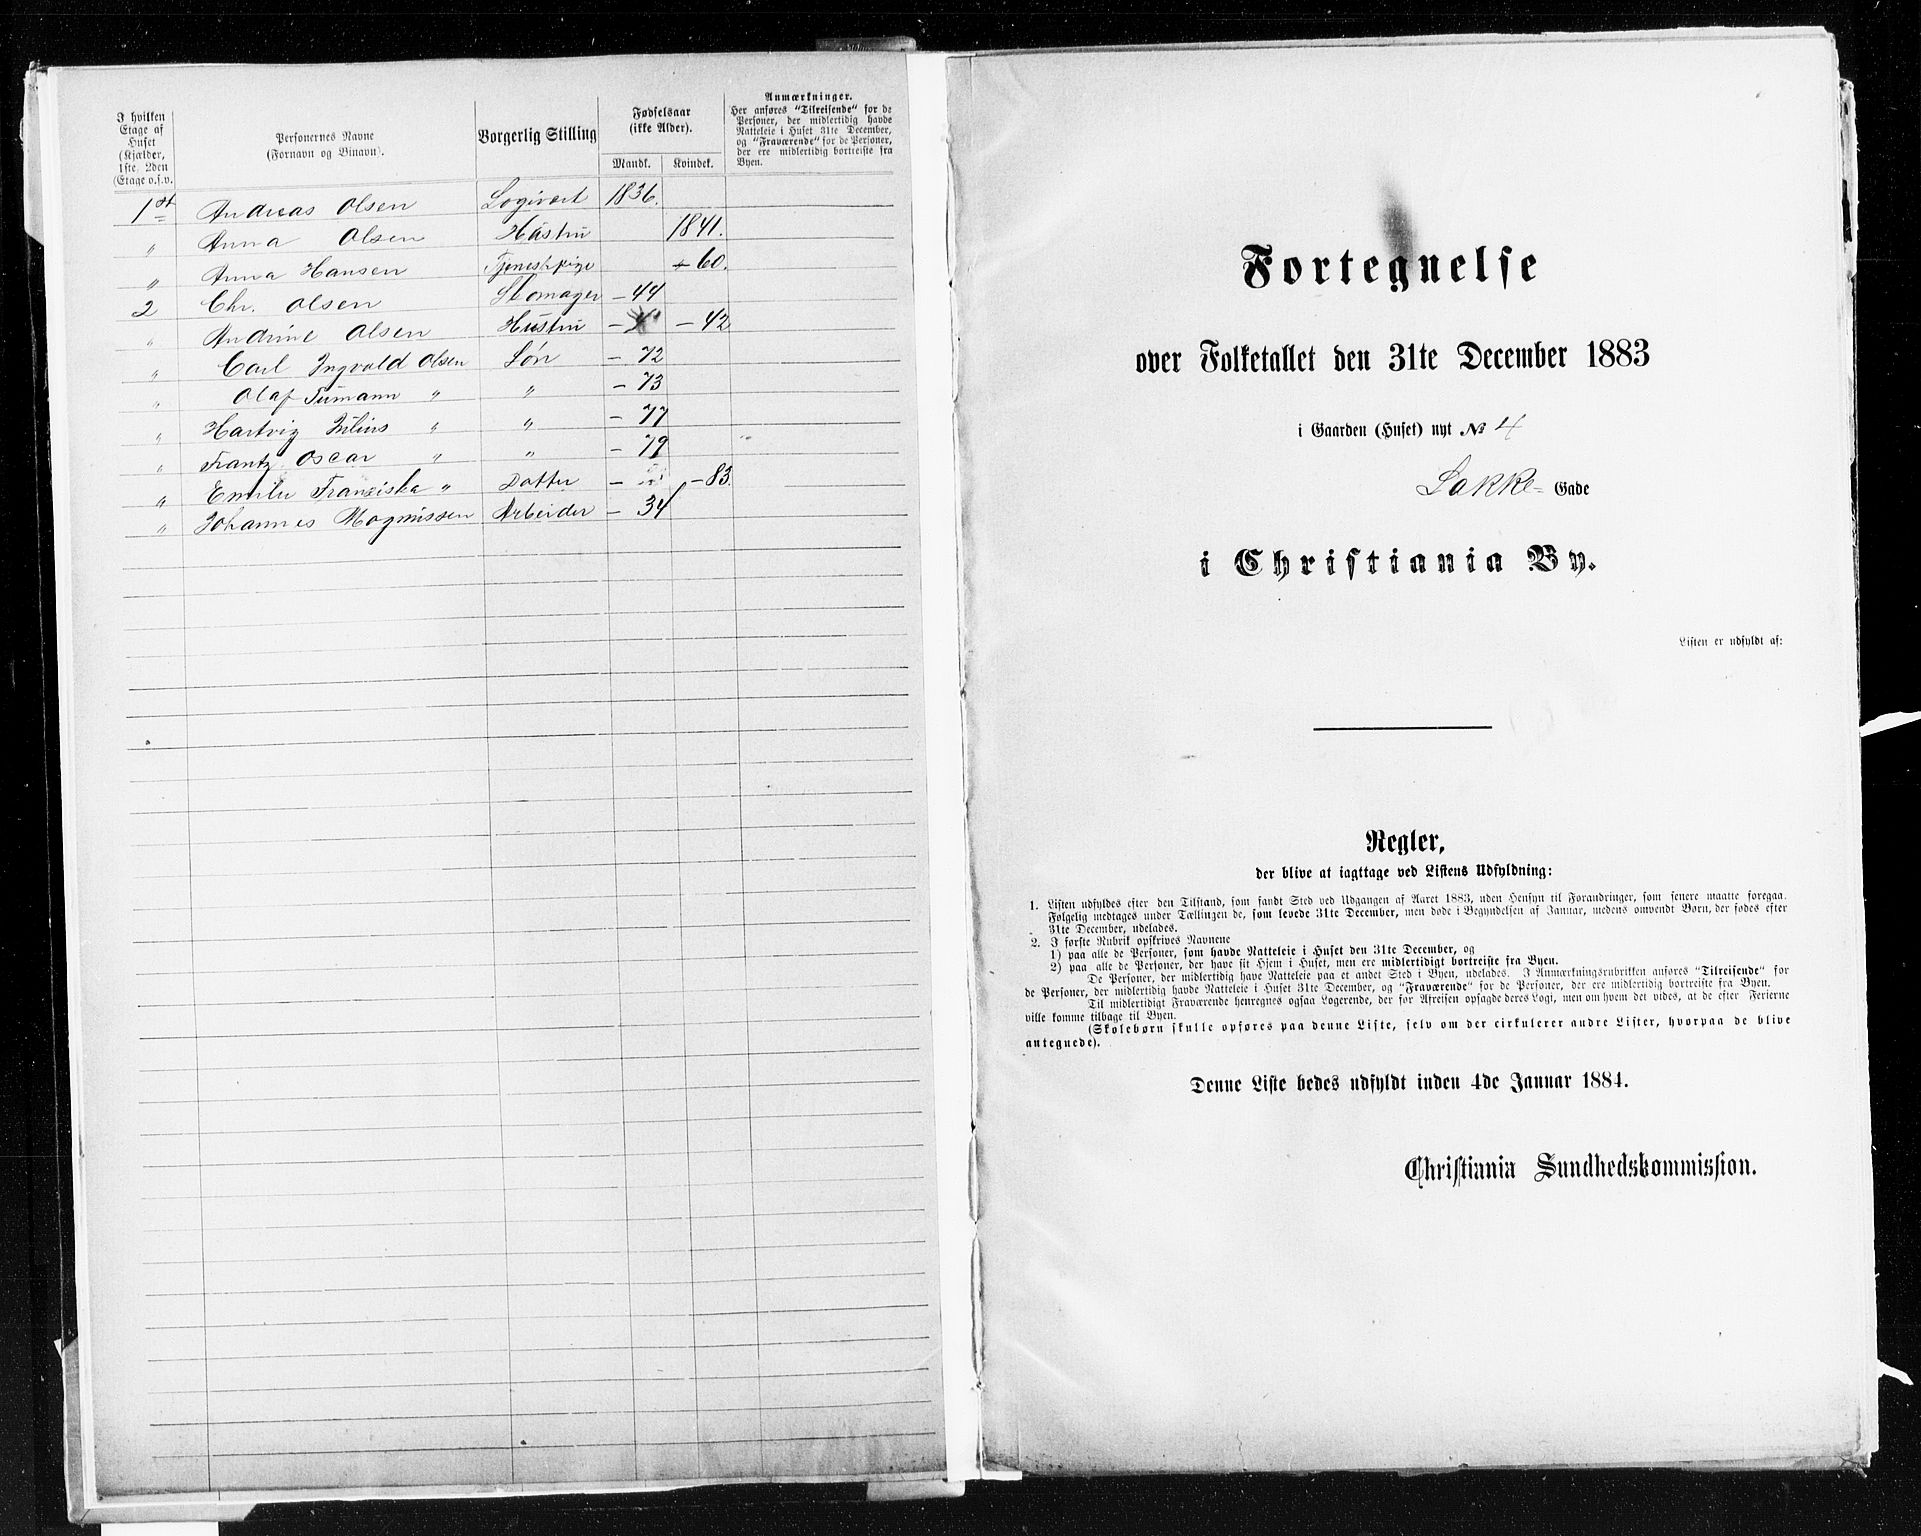 I hvilken
Etage af
Huset
(Kjælder,
1ste, 2den
Etage o.s.v.
Personernes Navne
(Fornavn og Binavn).
Borgerlig Stilling
Fødselsaar
(ikke Alder).
Mandk. Kvindek.
Anmærkninger.
Her anføres "Tilreisende" for de
Personer, der midlertidig havde
Natteleie i Huset 31te December,
og "Fraværende" for de Personer,
der ere midlertidig bortreiste fra
Byen.
1st Andreas Olsen Logivært 1836.
" Anna Olsen Hustru 1841.
" Anna Hansen Tjenestepige - 60.
2 Chr. Olsen Skomager - 44
" Andrine Olsen Hustru - - 42
" Carl Ingvald Olsen Søn - 72
" Olaf Tumann " " - 73
" Hartvig Julius " " - 77
" Frantz Oscar " " - 79
" Emilie Franziska " Datter - - 83.
" Johannes Magnussen Arbeider - 34
Fortegnelse
over Folketallet den 31te December 1883
i Gaarden (Huset) nyt № 4
Lakke- Gade
i Christiania By.
Listen er udfyldt af:
Regler,
der blive at iagttage ved Listens Udfyldning:
1. Listen udfyldes efter den Tilstand, som fandt Sted ved Udgangen af Aaret 1883, uden Hensyn til Forandringer, som senere maatte foregaa.
Følgelig medtages under Tællingen de, som levede 31te December, men døde i Begyndelsen af Januar, medens omvendt Børn, der fødes efter
31te December, udelades.
2. I første Rubrik opskrives Navnene
1) paa alle de Personer, som havde Natteleie i Huset den 31te December, og
2) paa alle de Personer, der have sit Hjem i Huset, men ere midlertidigt bortreiste fra Byen.
De Personer, der midlertidig have Natteleie paa et andet Sted i Byen, udelades. I Anmærkningsrubrikken anføres "Tilreisende" for
de Personer, der midlertidig havde Natteleie i Huset 31te December, og "Fraværende" for de Personer, der ere midlertidig bortreiste fra Byen.
Til midlertidigt Fraværende henregnes ogsaa Logerende, der før Afreisen opsagde deres Logi, men om hvem det vides, at de efter Ferierne
ville komme tilbage til Byen.
(Skolebørn skulle opføres paa denne Liste, selv om der cirkulerer andre Lister, hvorpaa de blive
antegnede).
Denne Liste bedes udfyldt inden 4de Januar 1884.
Christiania Sundhedskommission.